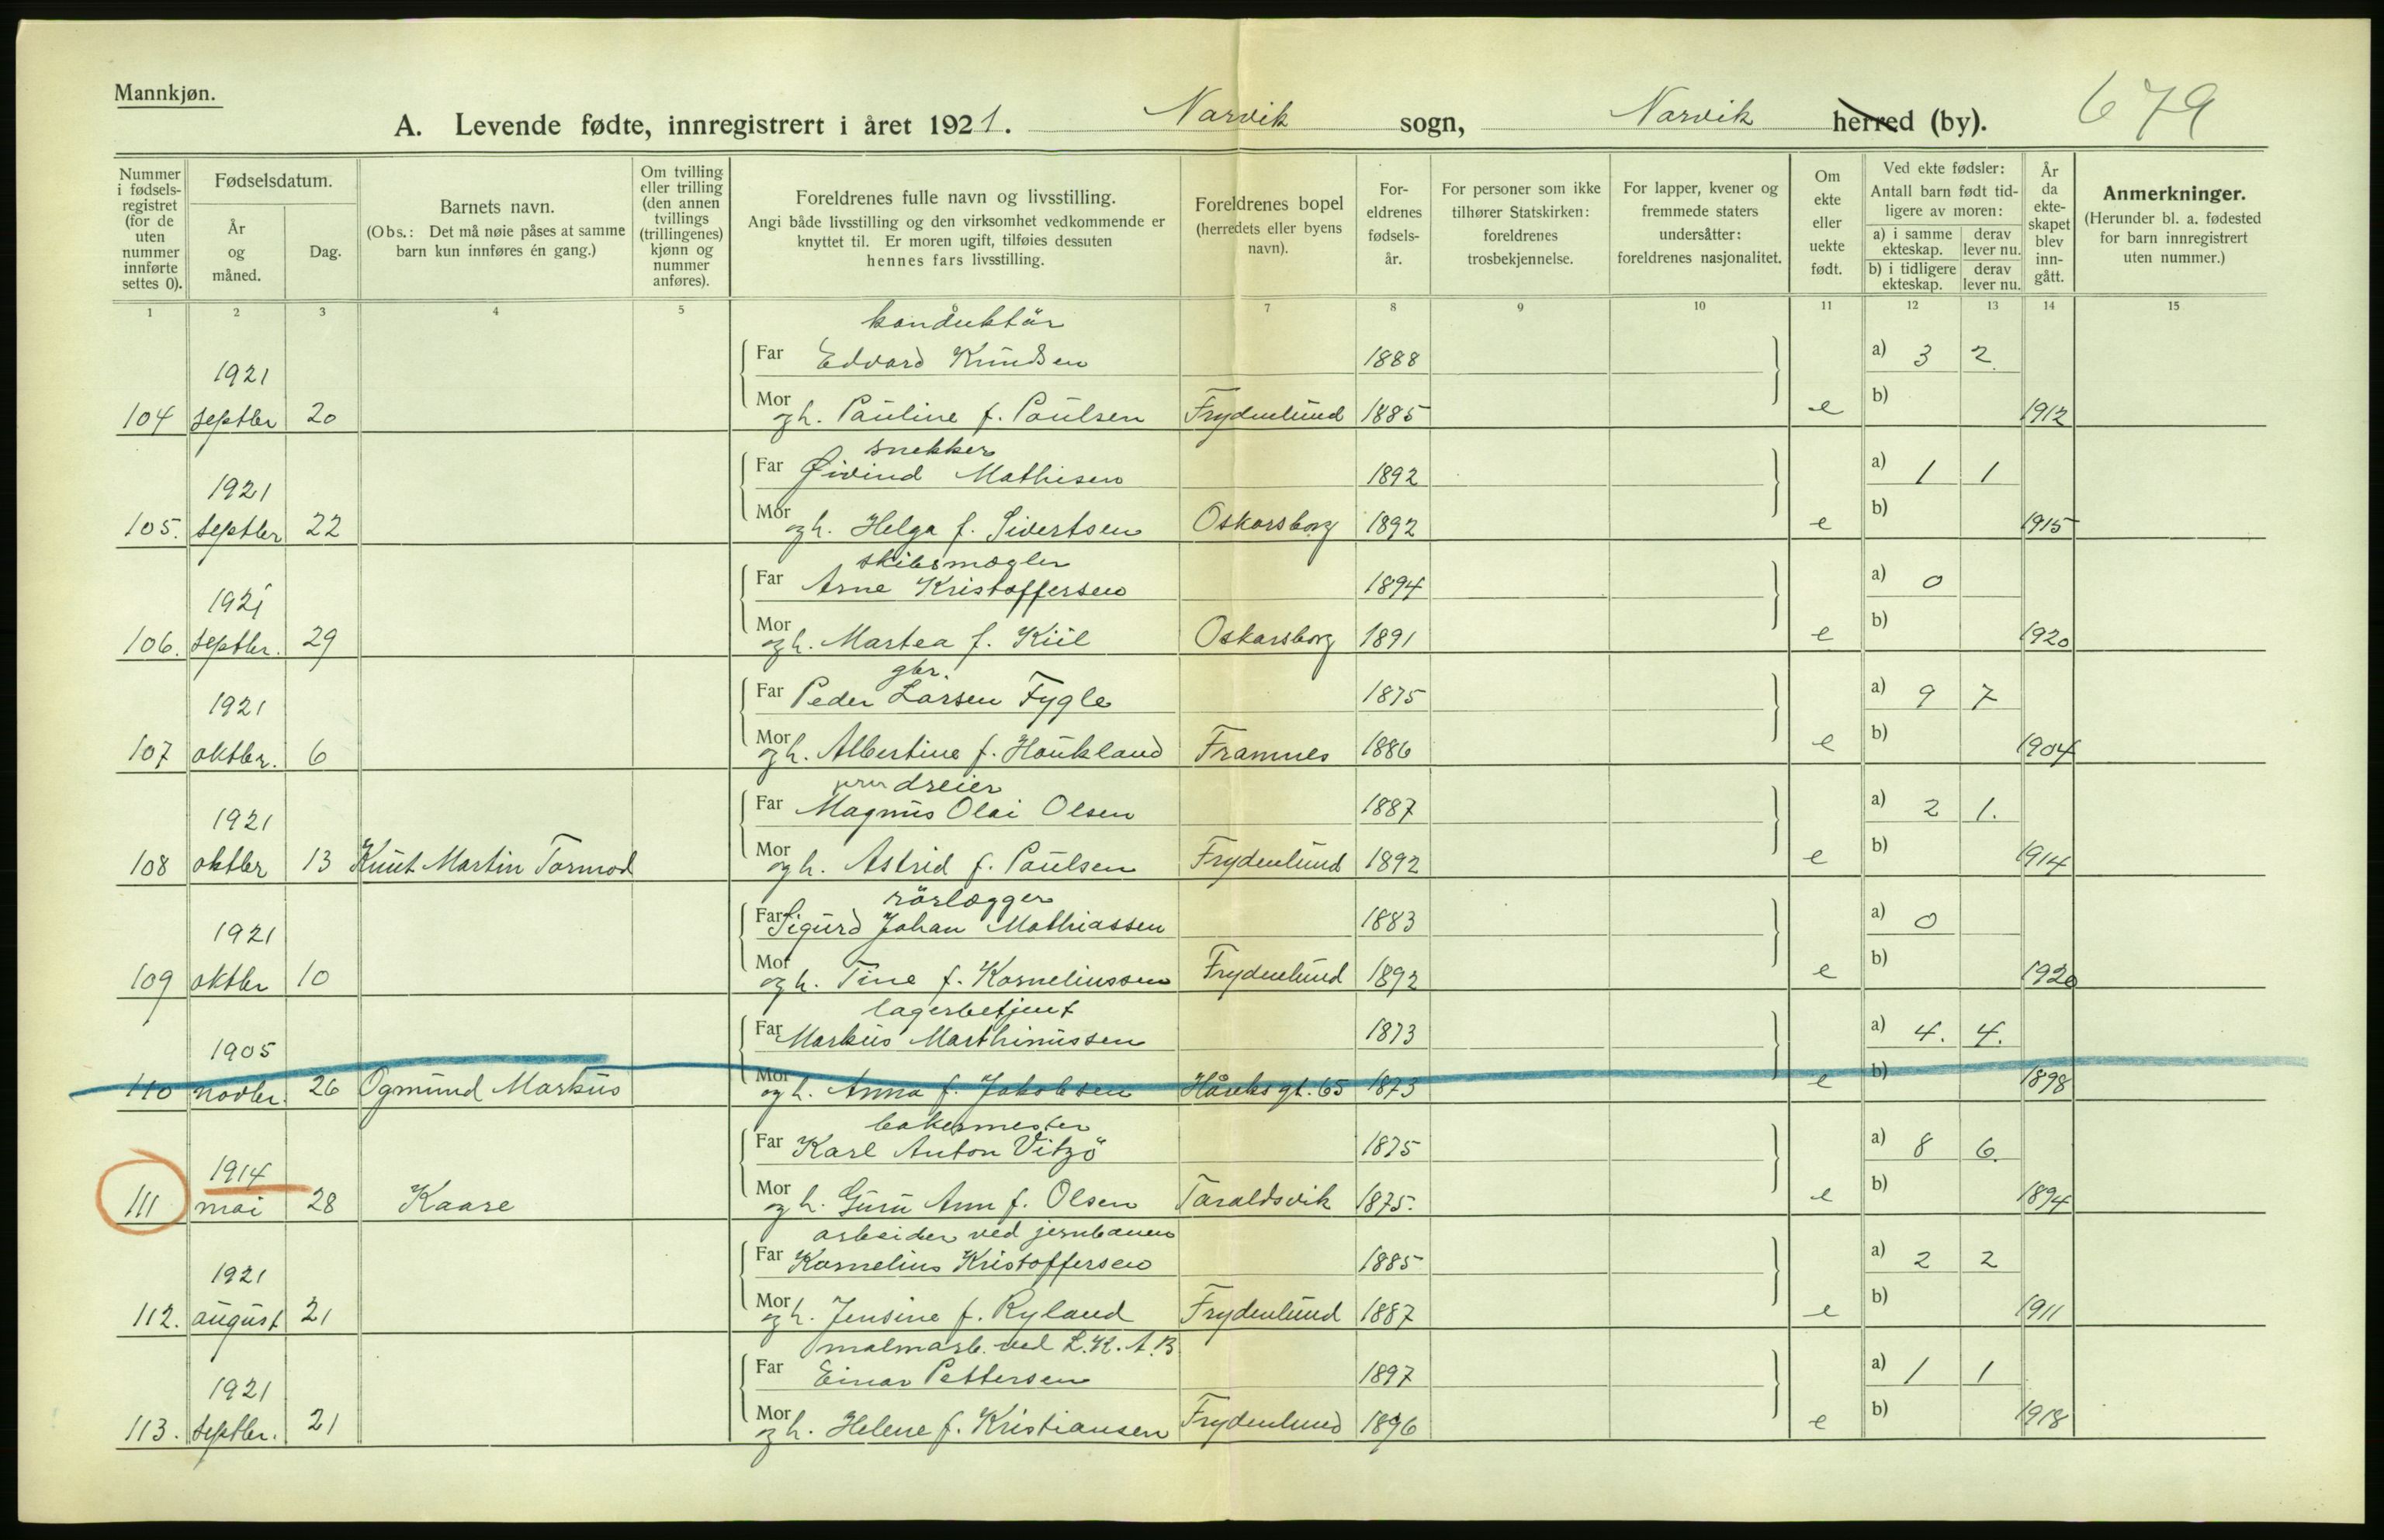 Mannkjøn.
A. Levende fødte, innregistrert i året 1921. Narvik sogn, Narvik herred (by). 679
Nummer i fødselsregistret (for de uten nummer innførte settes 0).
Fødselsdatum.
År og måned.
Dag.
Barnets navn.
(Obs.: Det må nøie påses at samme barn kun innføres én gang.)
Om tvilling eller trilling (den annen tvillings (trillingenes) kjønn og nummer anføres).
Foreldrenes fulle navn og livsstilling.
Angi både livsstilling og den virksomhet vedkommende er knyttet til. Er moren ugift, tilføies dessuten hennes fars livsstilling.
Foreldrenes bopel (herredets eller byens navn).
Foreldrenes fødselsår.
For personer som ikke tilhører Statskirken: foreldrenes trosbekjennelse.
For lapper, kvener og fremmede staters undersåtter: foreldrenes nasjonalitet.
Om ekte eller uekte født.
Ved ekte fødsler: Antall barn født tidligere av moren:
a) i samme ekteskap. derav lever nu.
b) i tidligere ekteskap. derav lever nu.
År da ekteskapet blev inngått.
Anmerkninger.
(Herunder bl. a. fødested for barn innregistrert uten nummer.)
1 2 3 4 5 7 8 9 10 11 12 13 14 15
konduktör
1921 Far Edvard Knudsen 1888 a) 3 2
104 septbr 20 Mor og h. Pauline f. Paulsen Frydenlund 1885 e b) 1912
snekker
1921 Far Øivind Mathisen 1892 a) 1 1
105. septbr 22 Mor og h. Helga f. Sivertsen Oskarsborg 1892 e b) 1915
skibsmægler
1921 Far Arne Kristoffersen 1894 a) 0
106. septbr. 29 Mor og h. Martea f. Kiil Oskarsborg 1891 e b) 1920
gbr.
1921 Far Peder Larsen Fygle 1875 a) 9 7
107 oktbr. 6 Mor og h. Albertine f. Haukland Framnes 1886 e b) 1904
dreier
1921 Far Magnus Olai Olsen 1887 a) 2 1.
108 oktbr 13 Knut Martin Tormod Mor og h. Astrid f. Paulsen Frydenlund 1892 e b) 1914
rörlægger
1921 Far Sigurd Johan Mathiassen 1883 a) 0
109 oktbr 10 Mor og h. Tine f. Korneliussen Frydenlund 1892 e b) 1920
lagerbetjent
1905 Far Markus Marthinussen 1873 a) 4. 4.
110 novbr. 26 Ogmund Markus Mor og h. Anna f. Jakobsen Håreks gt. 65 1873 e b) 1898
bakermester
1914 Far Karl Anton Vitzö 1875 a) 8 6.
111 mai 28 Kaare Mor og h. Guru Ann f. Olsen Taraldsvik 1875. e b) 1894
arbeider ved jernbanen
1921 Far Kornelius Kristoffersen 1885 a) 2 2
112. august 21 Mor og h. Jensine f. Ryland Frydenlund 1887 e b) 1911
malmarb. ved L.K.A.B
1921 Far Einar Pettersen 1897 a) 1 1
113. septbr. 21 Mor og h. Helene f. Kristiansen Frydenlund 1896 e b) 1918